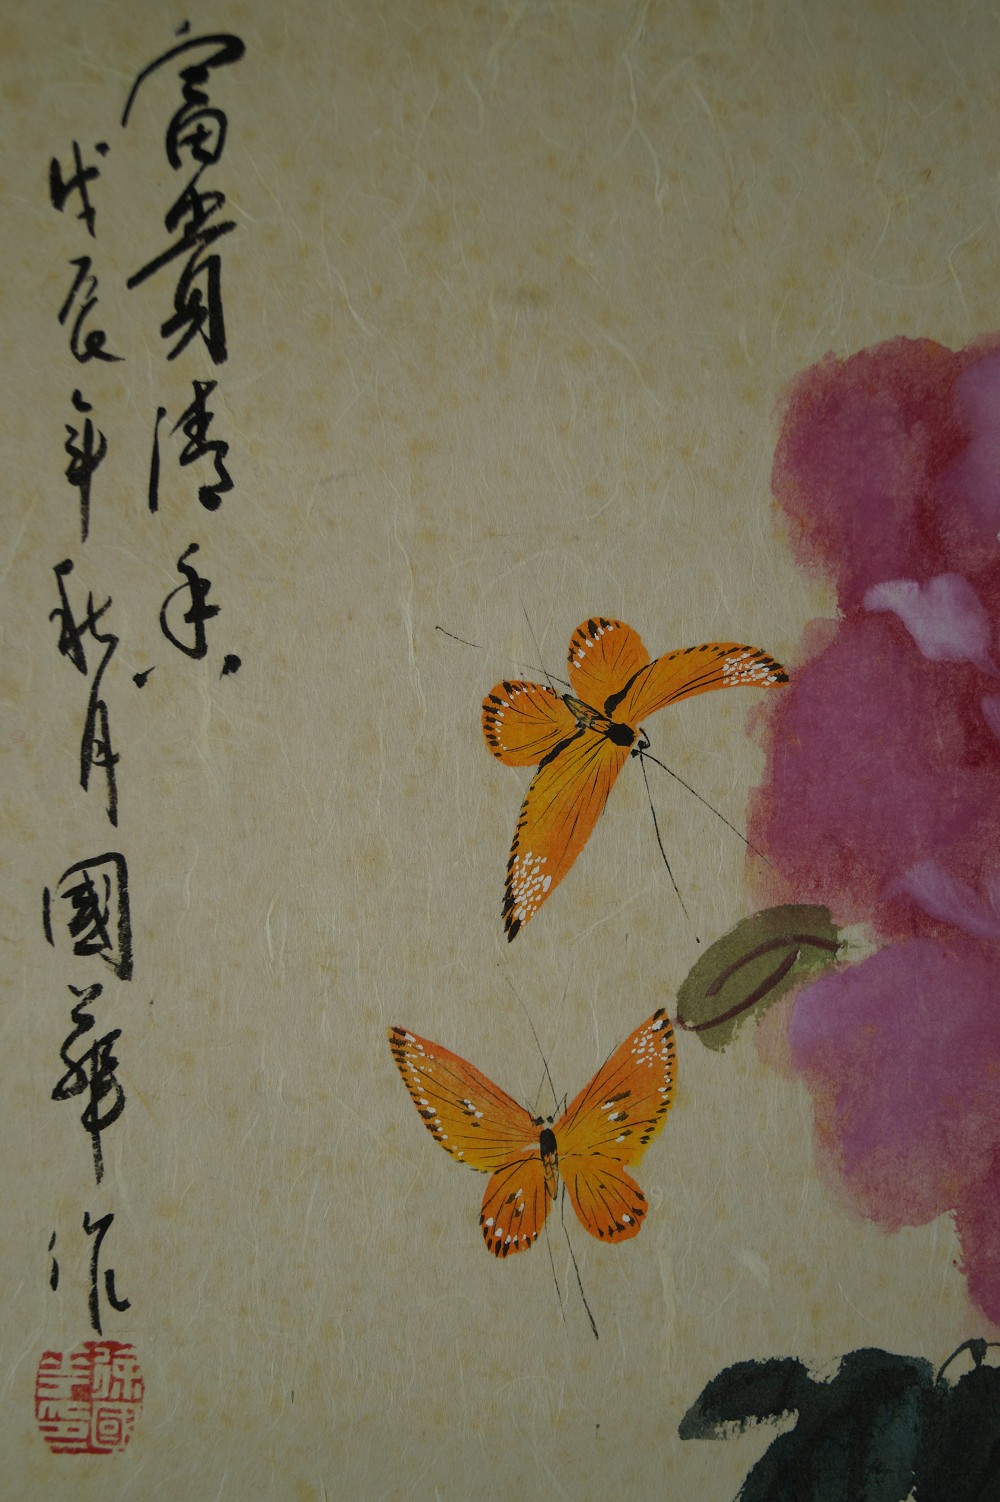 富貴清香
戊辰年秋月國華作